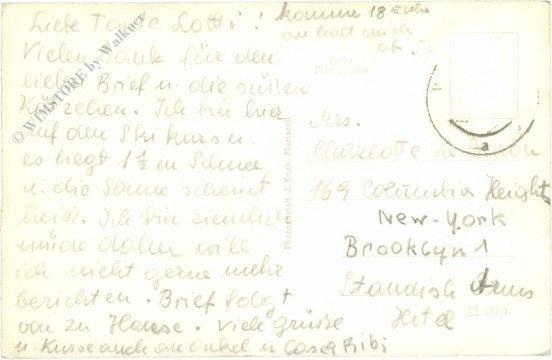 Liebe Tante Lotti!
komme 18 Uhr
an hol mich
ab.
Vielen Dank für den
lieben Brief u. die süßen
Kätzchen. Ich bin hier
auf den Skikurs u.
es liegt 1½ m Schnee
u. die Sonne scheint
heiß. Ich bin ziemlich
müde daher will
ich nicht gerne mehr
berichten. Brief folgt
von zu Hause. Viele Grüße
u. Küsse auch an Onkel u.
Bibi
Mrs.
Charlotte
169 Columbia Heights
New-York
Brooklyn 1
Standish Arms
Hotel
Echte
Photographie
Photoanstalt J. Kuss, Mariazell
a
© WIMSTORE by Walkner